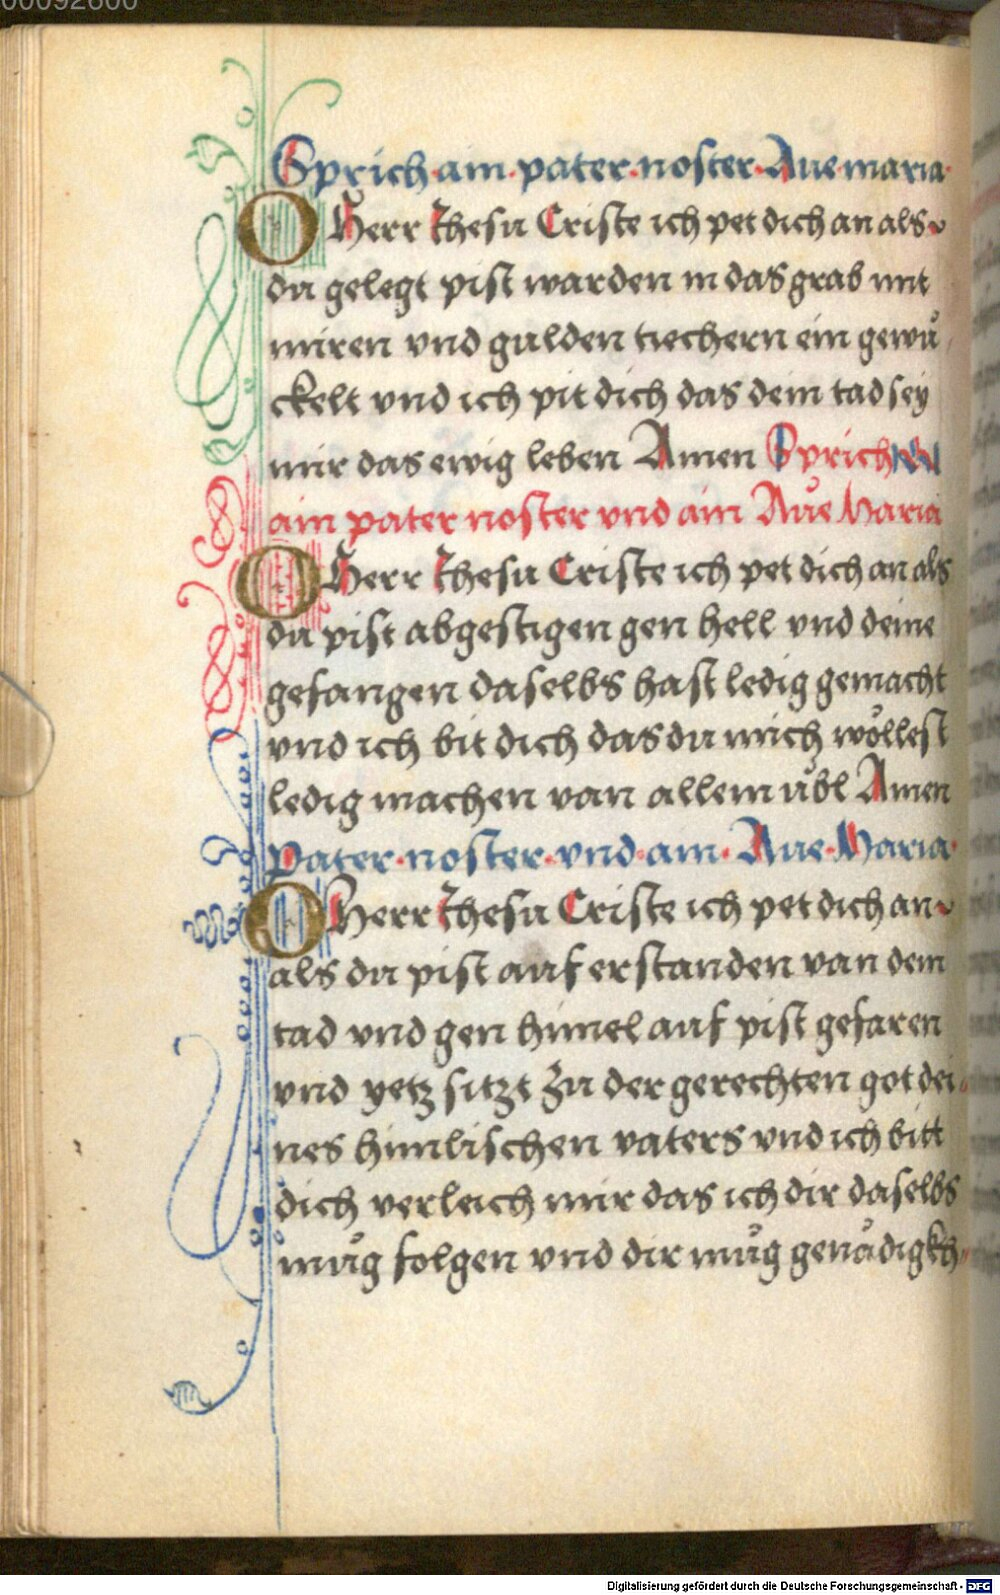 00092800
Sprich ain pater noster Aue maria
O Herr Jhesu Criste ich pet dich an als
du gelegt pist warden in das grab mit
mirren vnd gulden tiechern ein gewu
ckelt vnd ich pit dich das dein tad sey
mir das ewig leben Amen Sprich
ain pater noster vnd ain Aue Maria
O Herr Jhesu Criste ich pet dich an als
du pist abgestigen gen hell vnd deine
gefangen daselbs hast ledig gemacht
vnd ich bit dich das du mich wöllest
ledig machen van allem übl Amen
Pater noster vnd ain Aue Maria
O Herr Jhesu Criste ich pet dich an
als du pist auf erstanden van dem
tad vnd gen himel auf pist gefaren
vnd yetz sitzt zu der gerechten got dei
nes himlischen vaters vnd ich bitt
dich verleich mir das ich dir daselbs
müg folgen vnd dir müg genädigkh
Digitalisierung gefördert durch die Deutsche Forschungsgemeinschaft - DFG